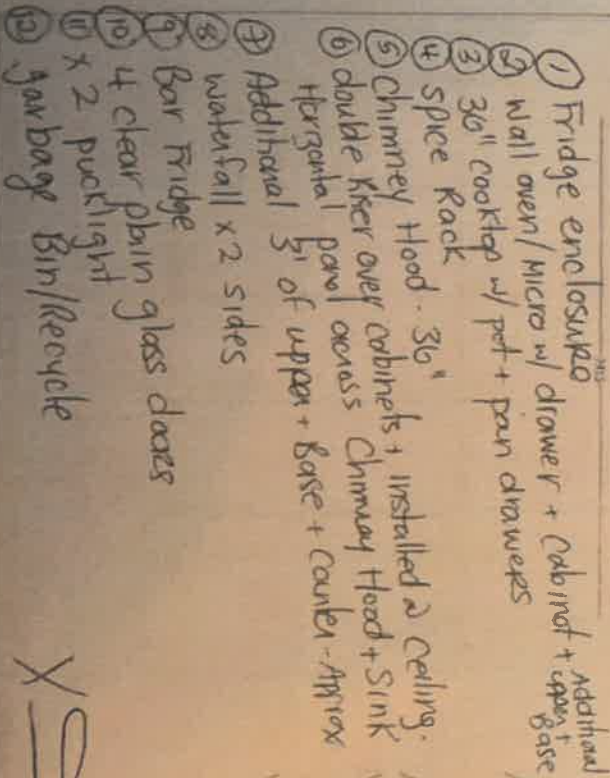 ① Fridge enclosure
② wall oven/Micro w/ drawer + Cabinet + Additional upper + Base
③ 36" cooktop w/ pot + pan drawers
④ spice Rack
⑤ Chimney Hood - 36"
⑥ double Riser over cabinets + installed 2 ceiling.
Horizontal panel across Chimney Hood + Sink
⑦ Additional 3' of upper + Base + Counter - Approx
⑧ waterfall x 2 sides
⑨ Bar Fridge
⑩ 4 clear plain glass doors
⑪ x 2 pucklight
⑫ garbage Bin/Recycle
X